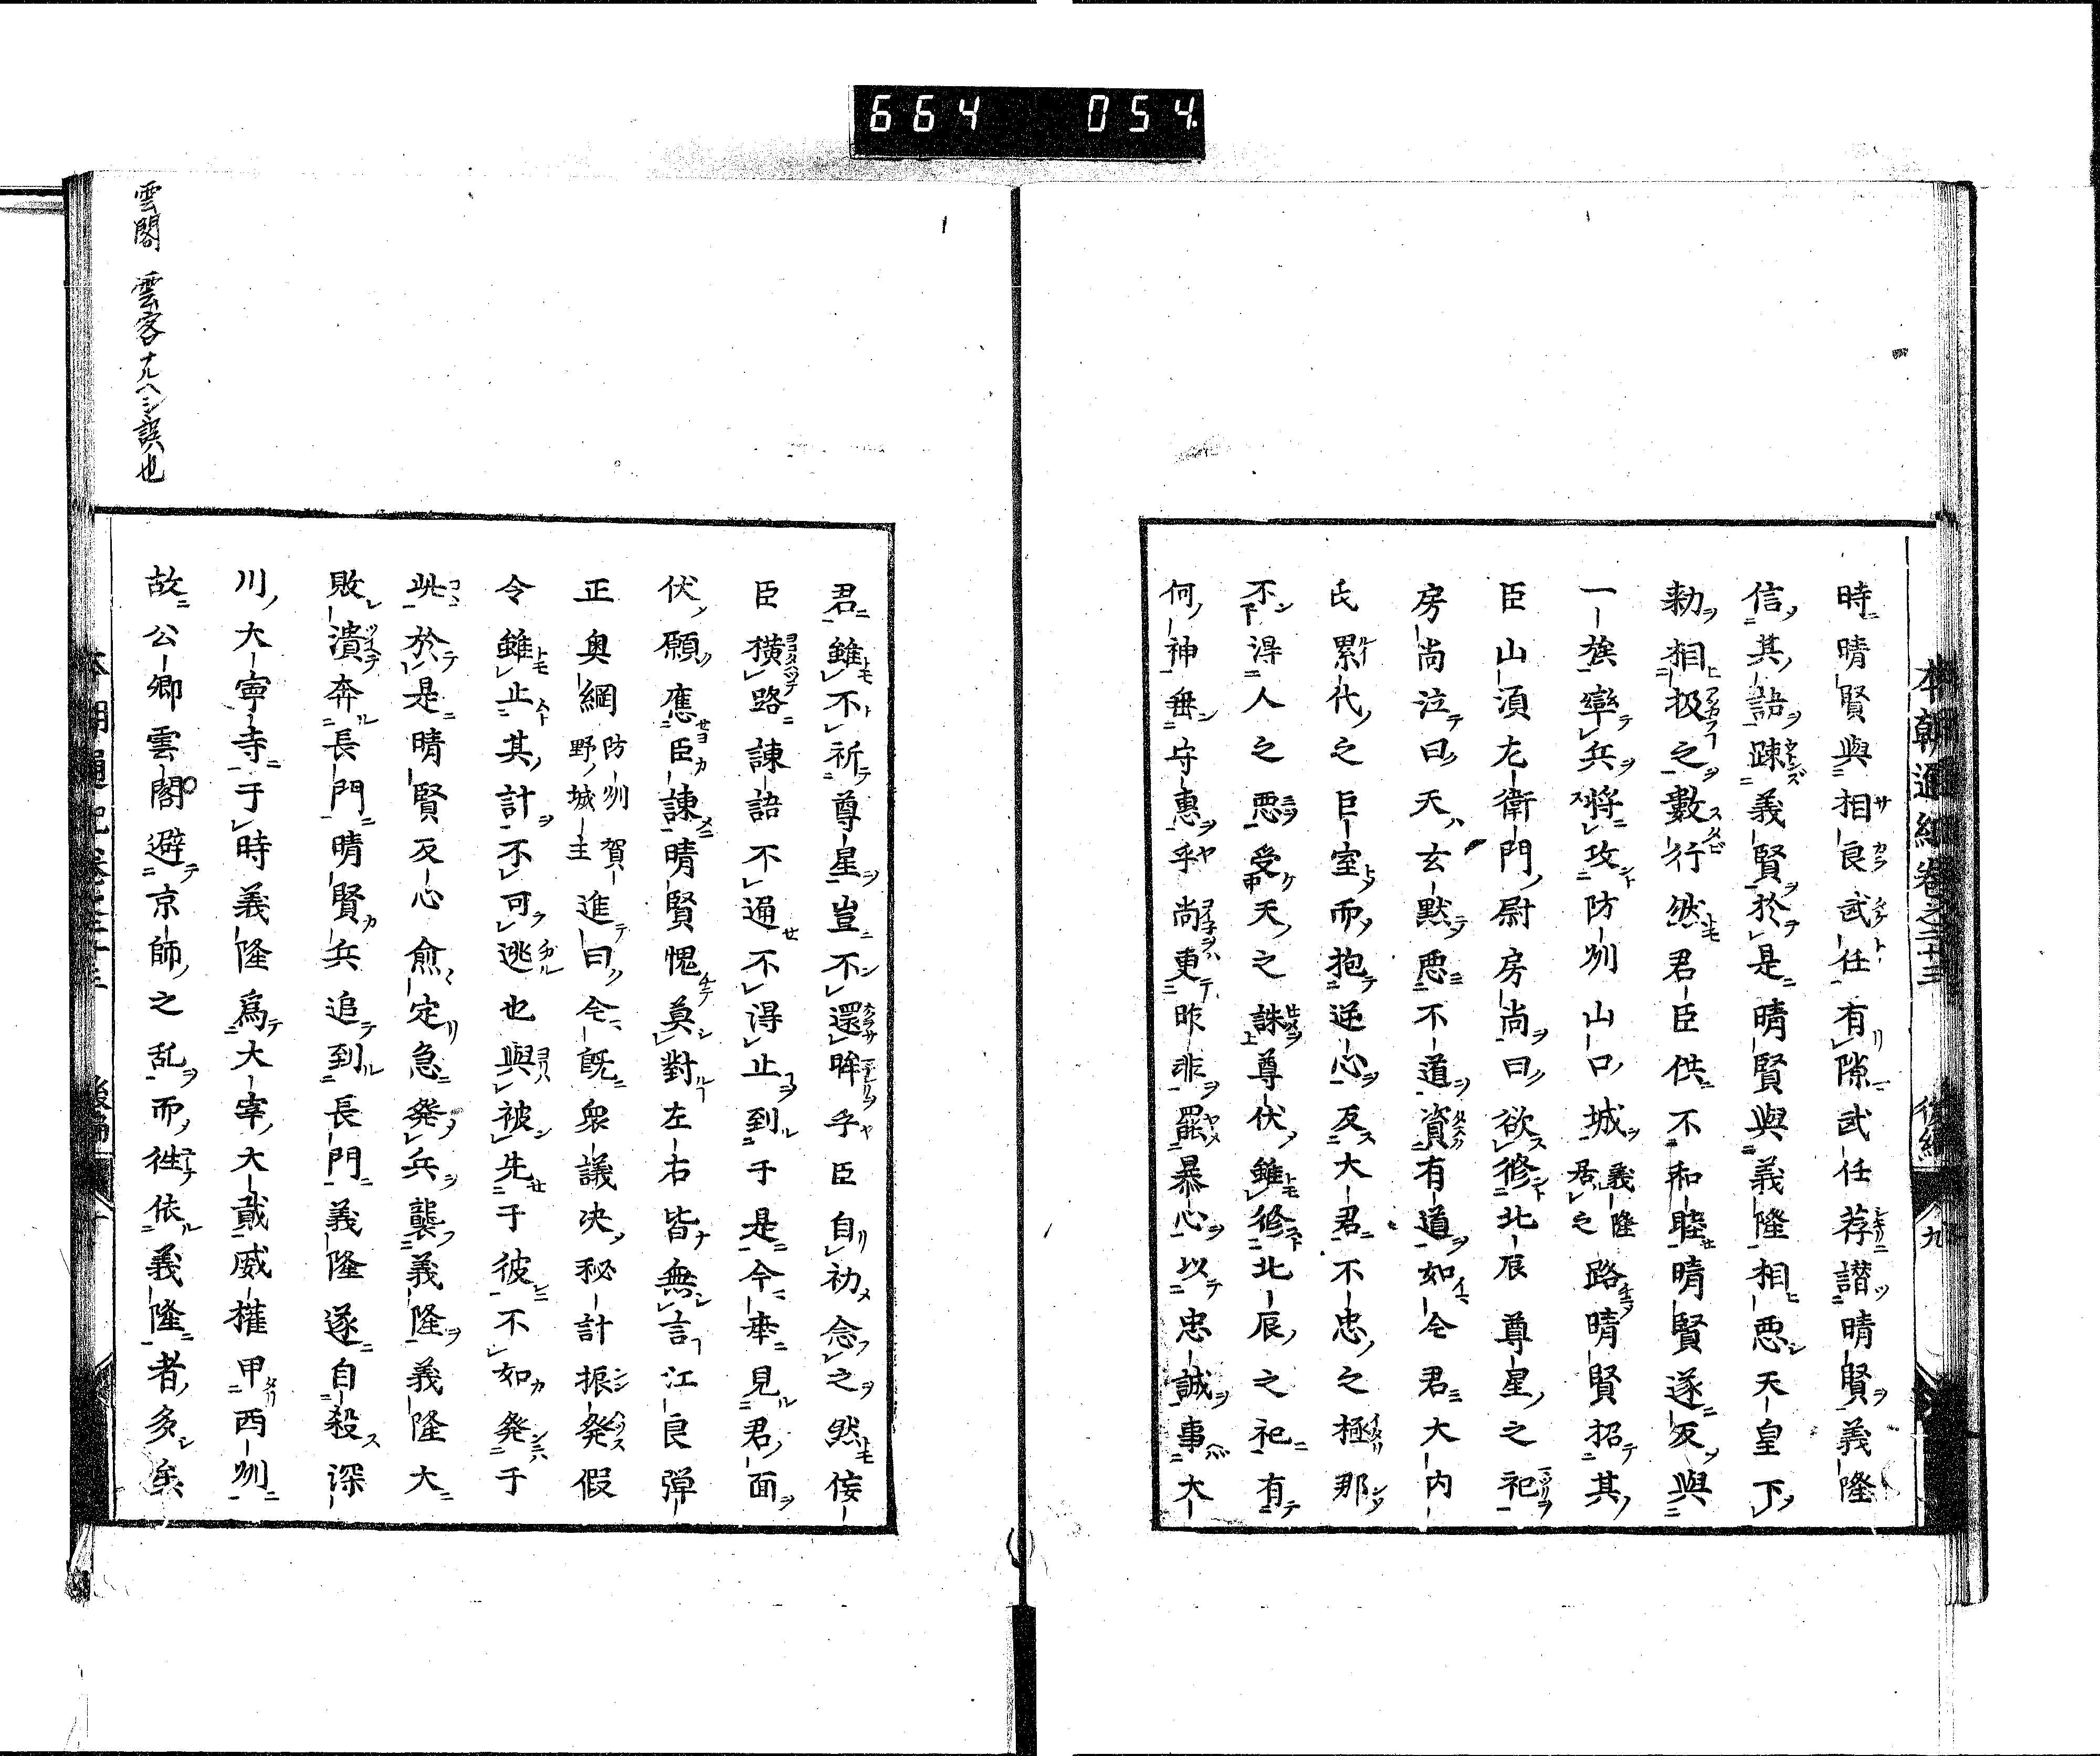 664 054
本朝通紀卷之二十三 後編 九
時晴賢與相良武任有隙武任荐譛晴賢義隆
信其語踈義賢於是晴賢與義隆相悪天皇下
勅相扱之數行然君臣供不和睦晴賢遂反與
一族牽兵將攻防州山口城義隆居之路晴賢招其
臣山須左衛門尉房尚曰欲修北辰尊星之祀
房尚泣曰天玄黙悪不道資有道如今君大内
氏累代之巨室而抱逆心反大君不忠之極那
不得人之悪受天之誅尊伏雖修北辰之祀有
何神毎守惠乎尚更昨非罷暴心以忠誠事大
君雖不祈尊星豈不還眸乎臣自初念之然侫
臣横路諫語不通不得止到于是今幸見君面
伏願應臣諫晴賢愧莫對左右皆無言江良弾
正奥綱防州賀野城主進曰今既衆議决秘計振発假
令雖止其計不可逃也與被先于彼不如発于
此於是晴賢反心愈定急発兵襲義隆義隆大
敗潰奔長門晴賢兵追到長門義隆遂自殺深
川大寧寺于時義隆爲大宰大貳威権甲西州
故公卿雲閣避京師之乱而徃依義隆者多矣
雲閣 雲客ナルヘシ誤也